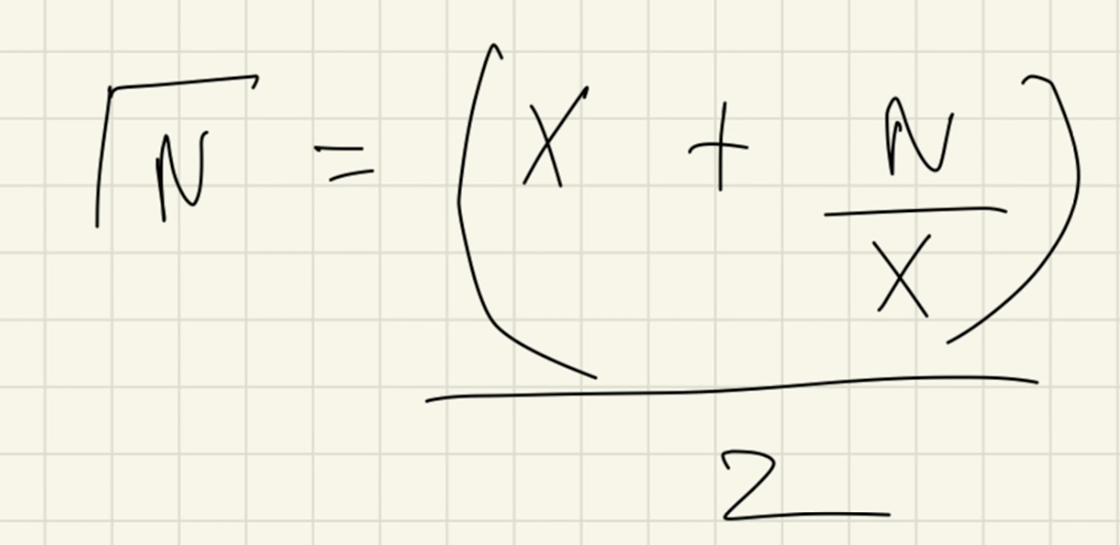 √N = (X + N/X) / 2